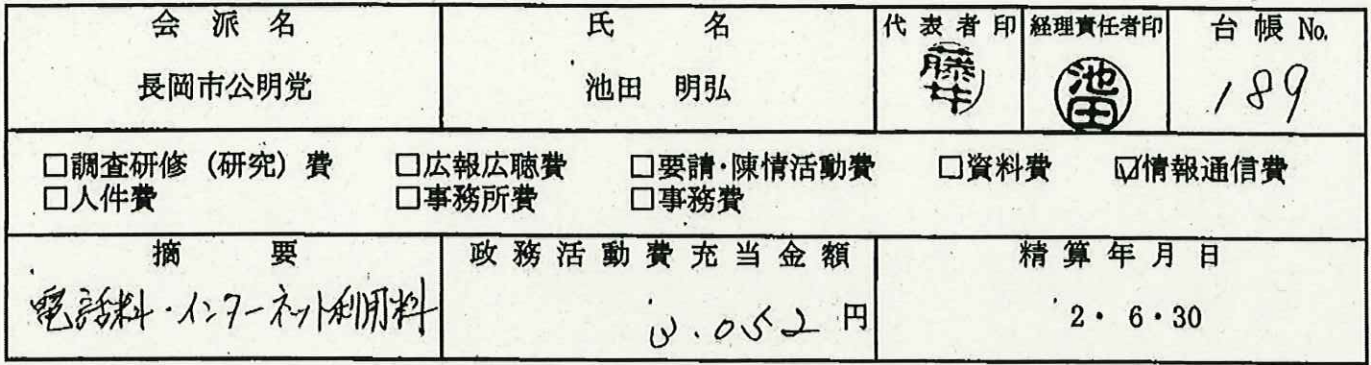 会派名 氏名 代表者印 経理責任者印 台帳 No.
長岡市公明党 池田 明弘 藤井 池田 189
□調査研修(研究)費 □広報広聴費 □要請・陳情活動費 □資料費 ☑情報通信費
□人件費 □事務所費 □事務費
摘要 政務活動費充当金額 精算年月日
電話料・インターネット利用料 3.052 円 2・6・30